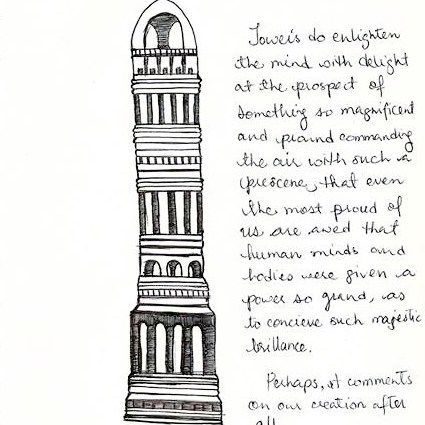 Towers do enlighten
the mind with delight
at the prospect of
something so magnificent
and proud commanding
the air with such a
prescene, that even
the most proud of
us are awed that
human minds and
bodies were given a
power so grand, as
to concieve such majestic
brillance.
Perhaps, it comments
on our creation after
all